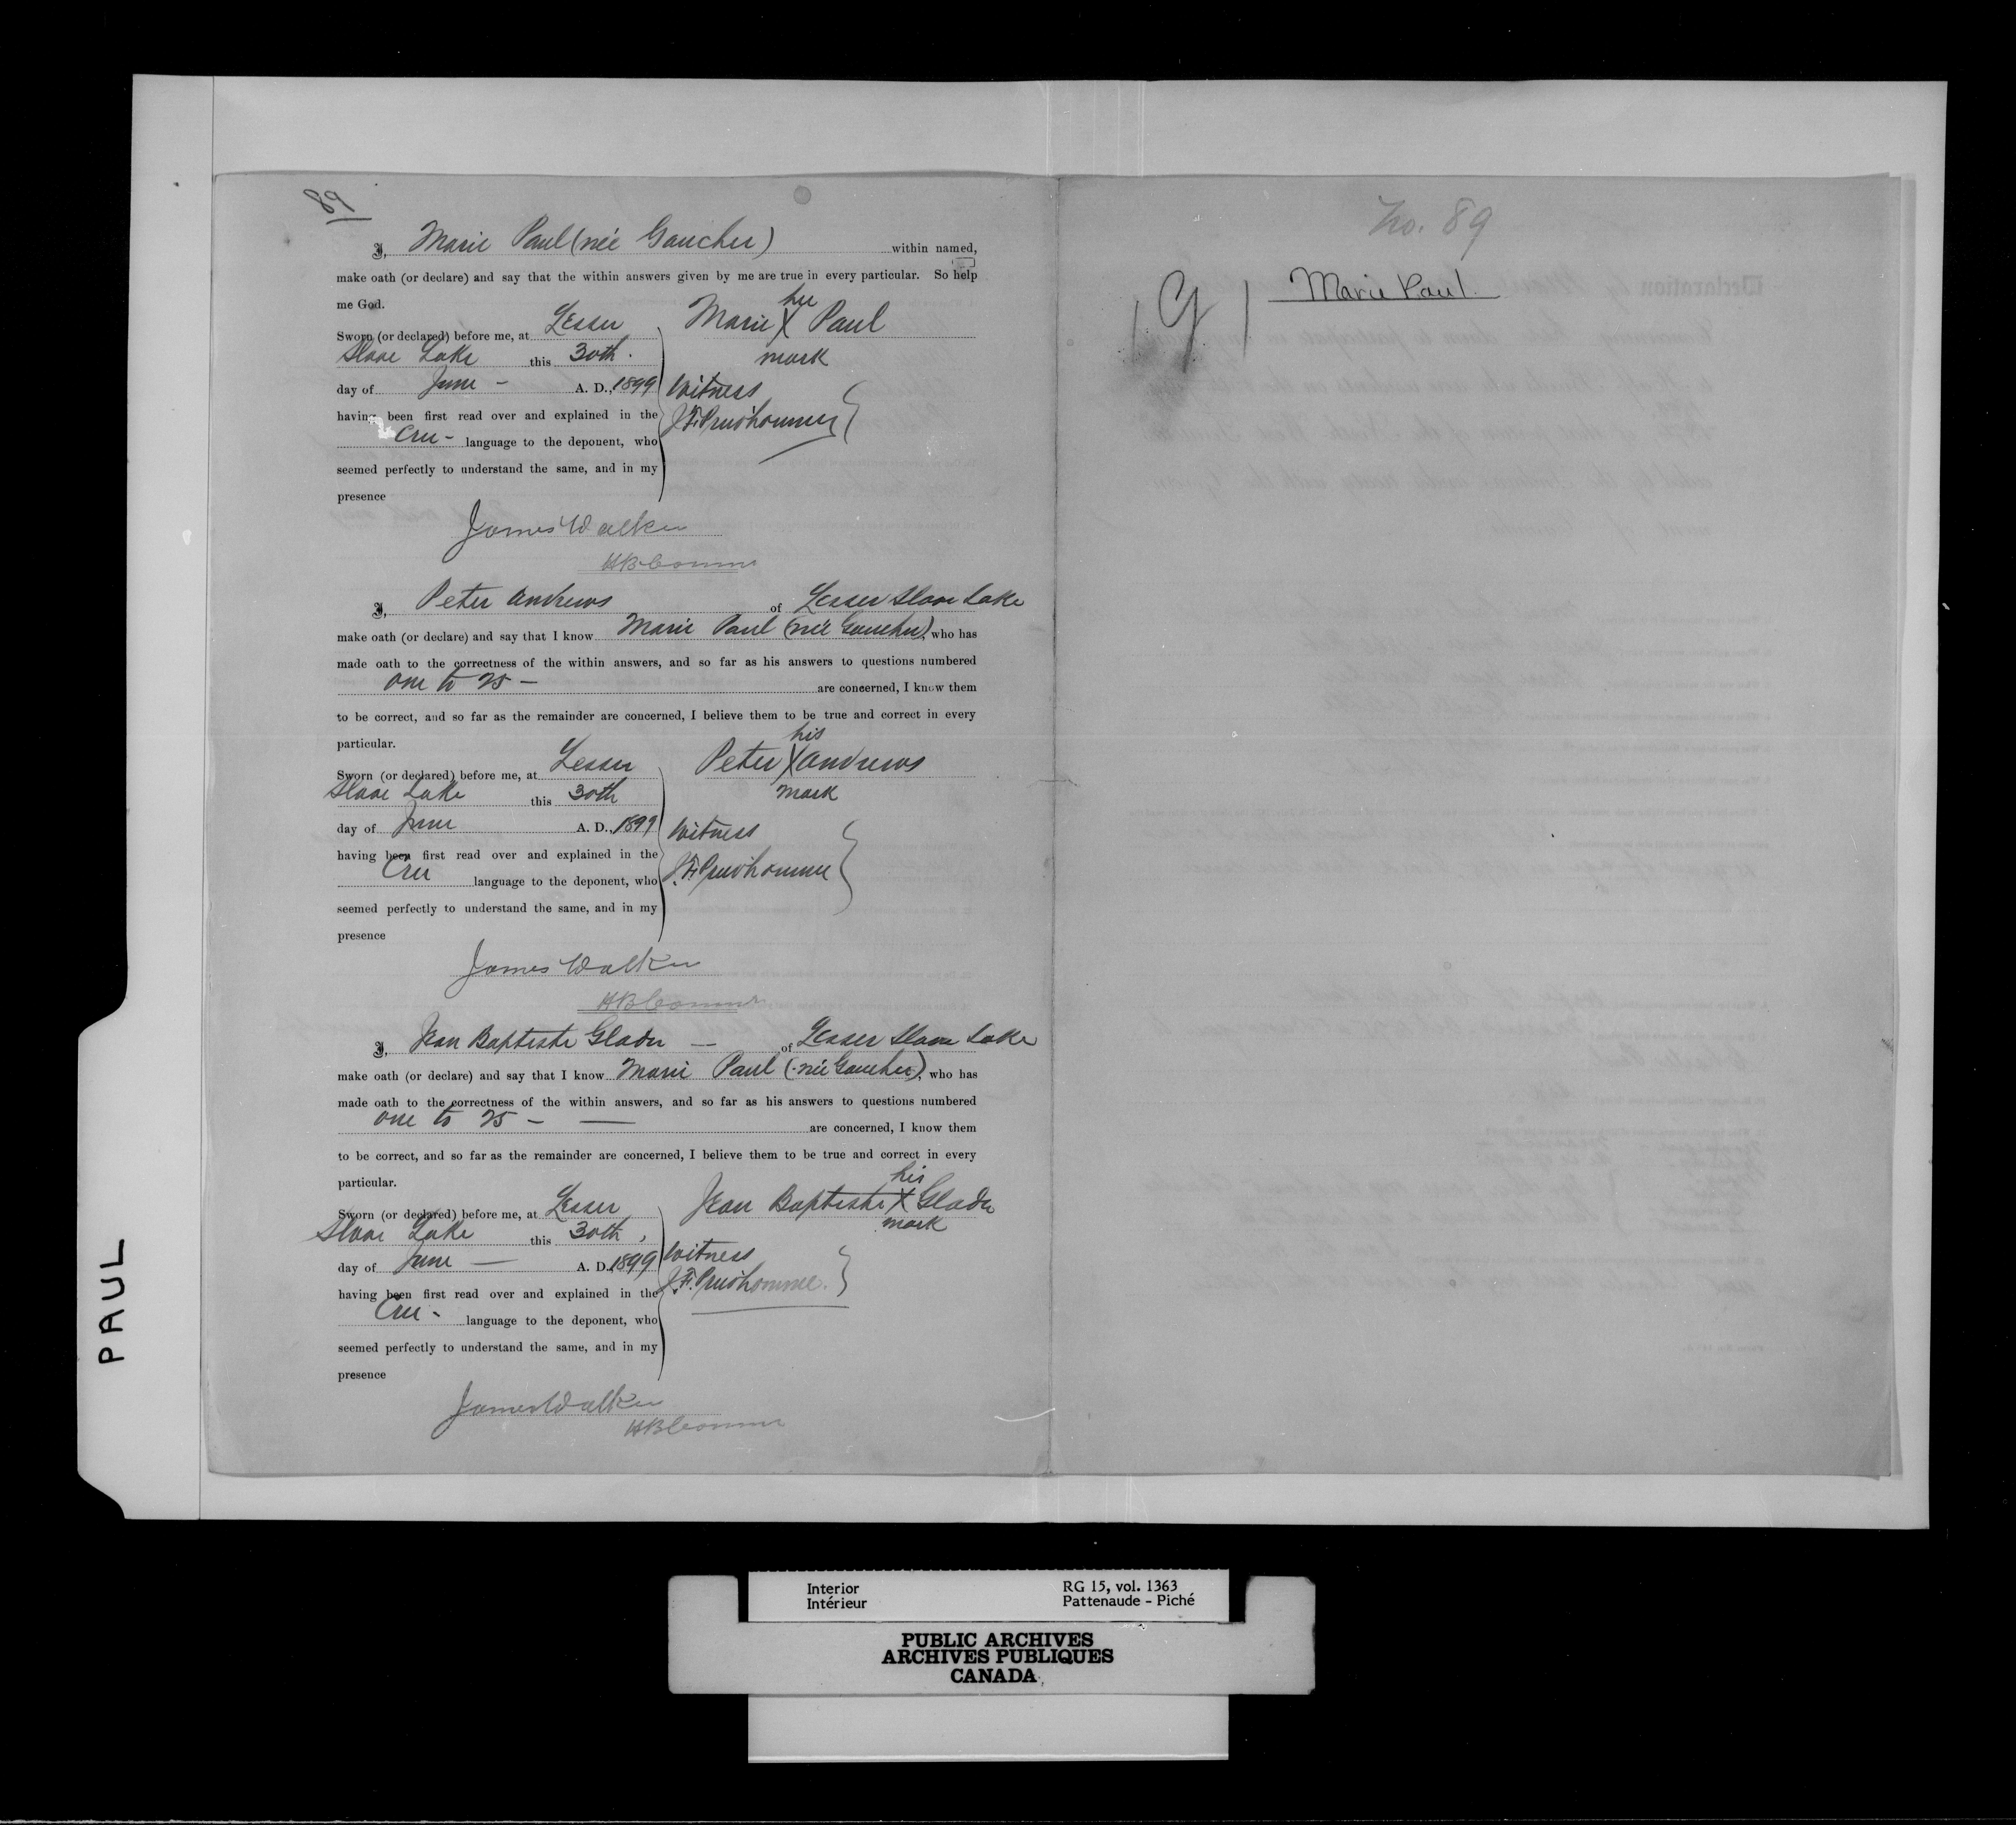 89
I, Marie Paul (née Gaucher) within named,
make oath (or declare) and say that the within answers given by me are true in every particular. So help
me God.
Sworn (or declared) before me, at Lesser
Slave Lake this 30th.
day of June - A. D., 1899
having been first read over and explained in the
Cree - language to the deponent, who
seemed perfectly to understand the same, and in my
presence
her
Marie X Paul
mark
Witness
J.F. Prud'homme
James Walker
HB Commr
I, Peter Andrews of Lesser Slave Lake
make oath (or declare) and say that I know Marie Paul (née Gaucher), who has
made oath to the correctness of the within answers, and so far as his answers to questions numbered
one to 25 - are concerned, I know them
to be correct, and so far as the remainder are concerned, I believe them to be true and correct in every
particular.
Sworn (or declared) before me, at Lesser
Slave Lake this 30th
day of June A. D., 1899
having been first read over and explained in the
Cree language to the deponent, who
seemed perfectly to understand the same, and in my
presence
his
Peter X Andrews
mark
Witness
J.F. Prud'homme
James Walker
HB Commr
I, Jean Baptiste Gladu — of Lesser Slave Lake
make oath (or declare) and say that I know Marie Paul (née Gaucher), who has
made oath to the correctness of the within answers, and so far as his answers to questions numbered
one to 25 - — are concerned, I know them
to be correct, and so far as the remainder are concerned, I believe them to be true and correct in every
particular.
Sworn (or declared) before me, at Lesser
Slave Lake this 30th,
day of June — A. D. 1899
having been first read over and explained in the
Cree - language to the deponent, who
seemed perfectly to understand the same, and in my
presence
his
Jean Baptiste X Gladu
mark
Witness
J.F. Prud'homme.
James Walker
HB Commr
No. 89
Marie Paul.
PAUL
Interior
Intérieur
RG 15, vol. 1363
Pattenaude - Piché
PUBLIC ARCHIVES
ARCHIVES PUBLIQUES
CANADA